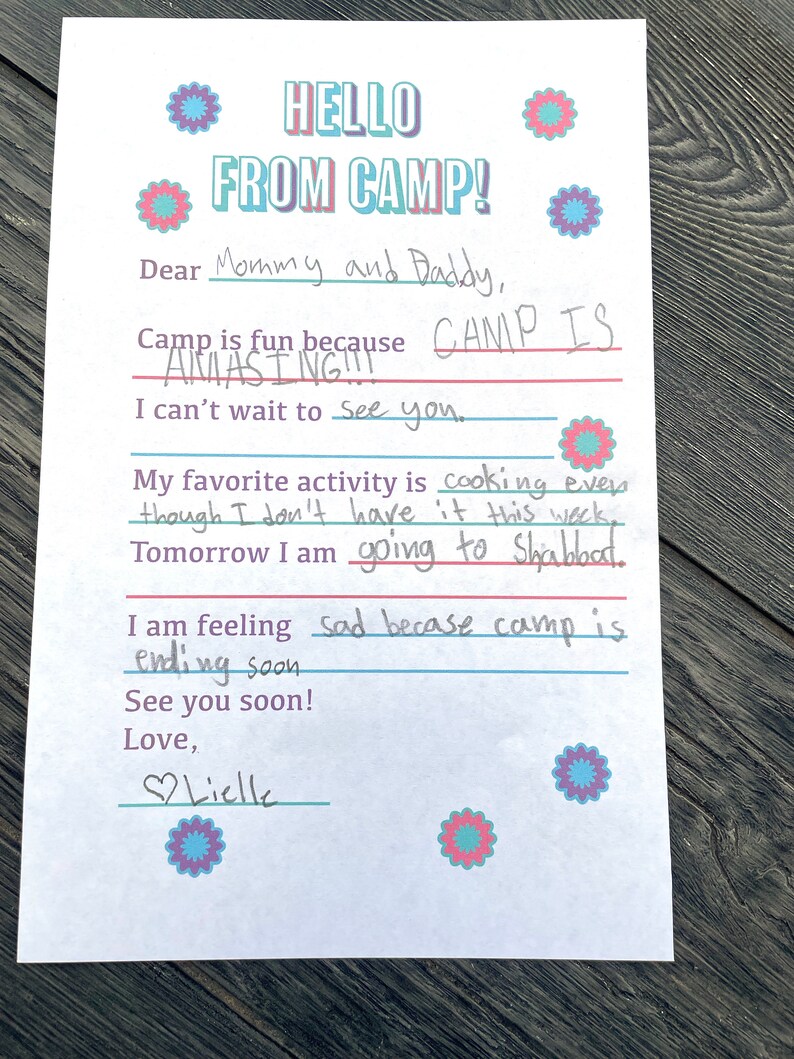 HELLO
FROM CAMP!
Dear Mommy and Daddy,
Camp is fun because CAMP IS
AMASING!!!
I can't wait to see you.
My favorite activity is cooking even
though I don't have it this week.
Tomorrow I am going to Shabbat.
I am feeling sad becase camp is
ending soon
See you soon!
Love,
♡Lielle